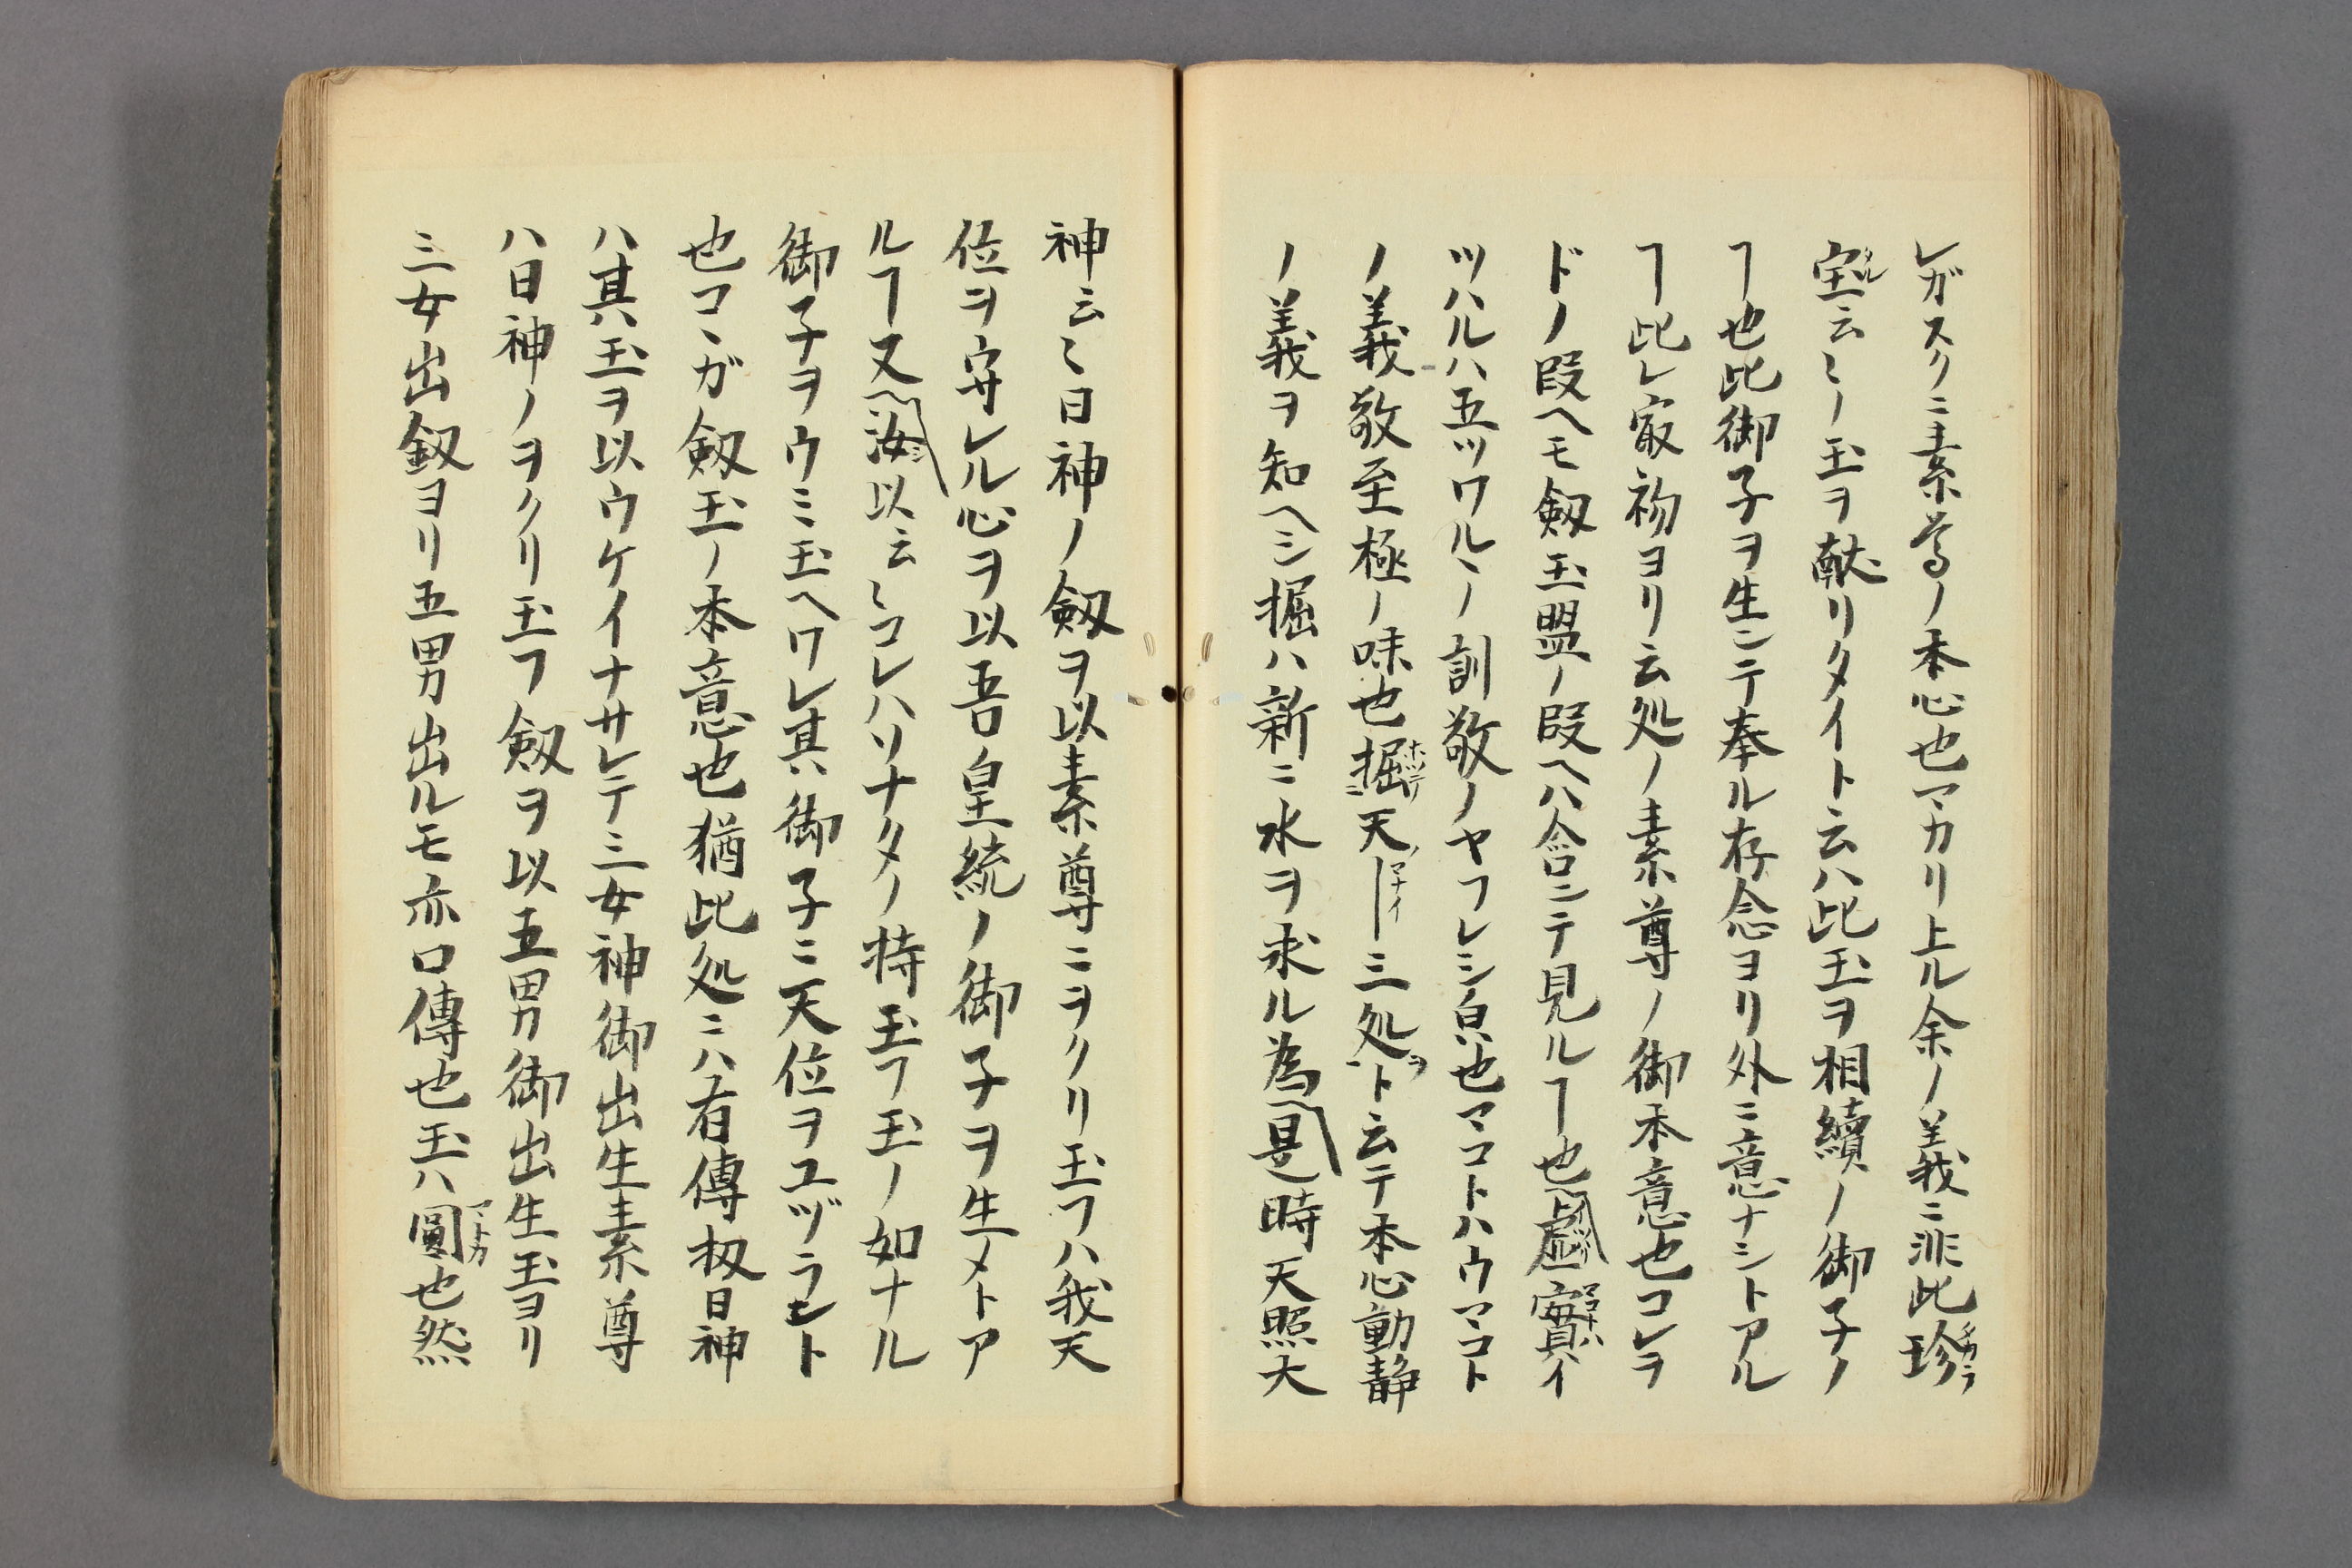 レガスクニ素尊ノ本心也マカリ上ル余ノ義ニ非此珍
宝云〻ノ玉ヲ献リタイト云ハ此玉ヲ相續ノ御子ノ
ヿ也此御子ヲ生ンテ奉ル存念ヨリ外ニ意ナシトアル
ヿ此レ寂初ヨリ云処ノ素尊ノ御本意也コレヲ
ドノ段ヘモ劔玉盟ノ段ヘハ合シテ見ルヿ也虚實イ
ツハルハ五ツワルヽノ訓敬ノヤフレシ㒵也マコトハウマコト
ノ義敬至極ノ味也掘天―三処ト云テ本心動静
ノ義ヲ知ヘシ掘ハ新ニ水ヲ求ル為是時天照大
神云〻日神ノ劔ヲ以素尊ニヲクリ玉フハ我天
位ヲ守レル心ヲ以吾皇統ノ御子ヲ生メトア
ルヿ又汝以云〻コレハソナタノ持玉フ玉ノ如ナル
御子ヲウミ玉ヘワレ其御子ニ天位ヲユヅラント
也コヽガ劔玉ノ本意也猶此処ニハ有傳扨日神
ハ其玉ヲ以ウケイナサレテ三女神御出生素尊
ハ日神ノヲクリ玉フ劔ヲ以五男御出生玉ヨリ
三女出釼ヨリ五男出ルモ亦口傳也玉ハ圓也然